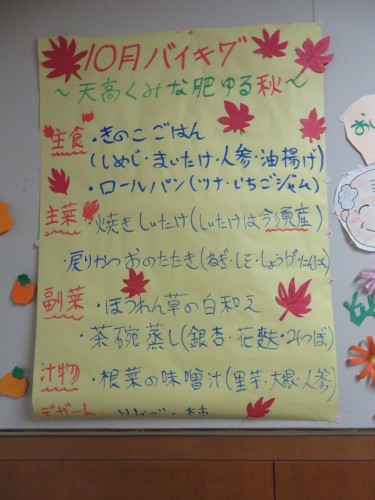 10月バイキング
～天高くみな肥ゆる秋～
主食・きのこごはん
(しめじ・まいたけ・人参・油揚げ)
・ロールパン(ツナ・いちごジャム)
主菜・焼きしいたけ(しいたけは今須産)
・戻りかつおのたたき(ねぎ・しそ・しょうが・たにんにく)
副菜・ほうれん草の白和え
・茶碗蒸し(銀杏・花麩・みつば)
汁物・根菜の味噌汁(里芋・大根・人参)
デザート・りんご・柿